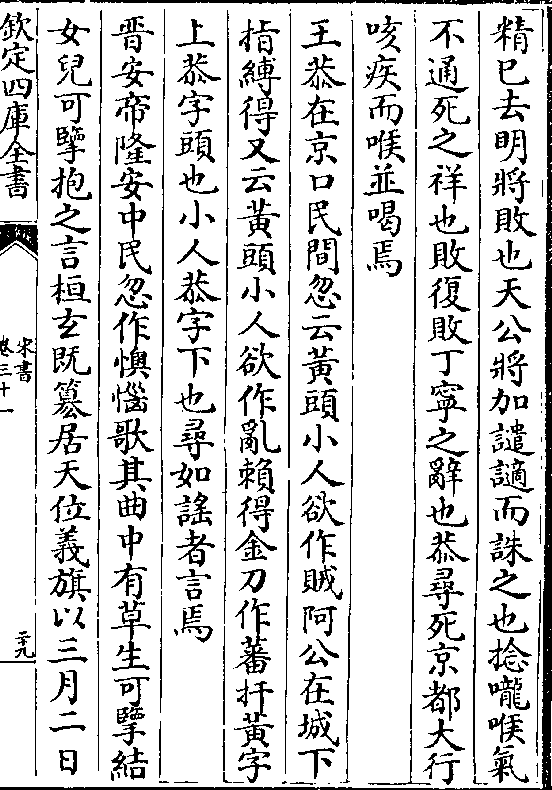 精已去明將敗也天公將加譴謫而誅之也捻嚨喉氣
不通死之祥也敗復敗丁寧之辭也恭尋死京都大行
咳疾而喉並喝焉
王恭在京口民間忽云黃頭小人欲作賊阿公在城下
指縛得又云黃頭小人欲作亂賴得金刀作蕃扞黃字
上恭字頭也小人恭字下也尋如謡者言焉
晋安帝隆安中民忽作懊惱歌其曲中有草生可擥結
女兒可擥抱之言桓玄既篡居天位義旗以三月二日
欽定四庫全書
宋書
卷三十一
二十九